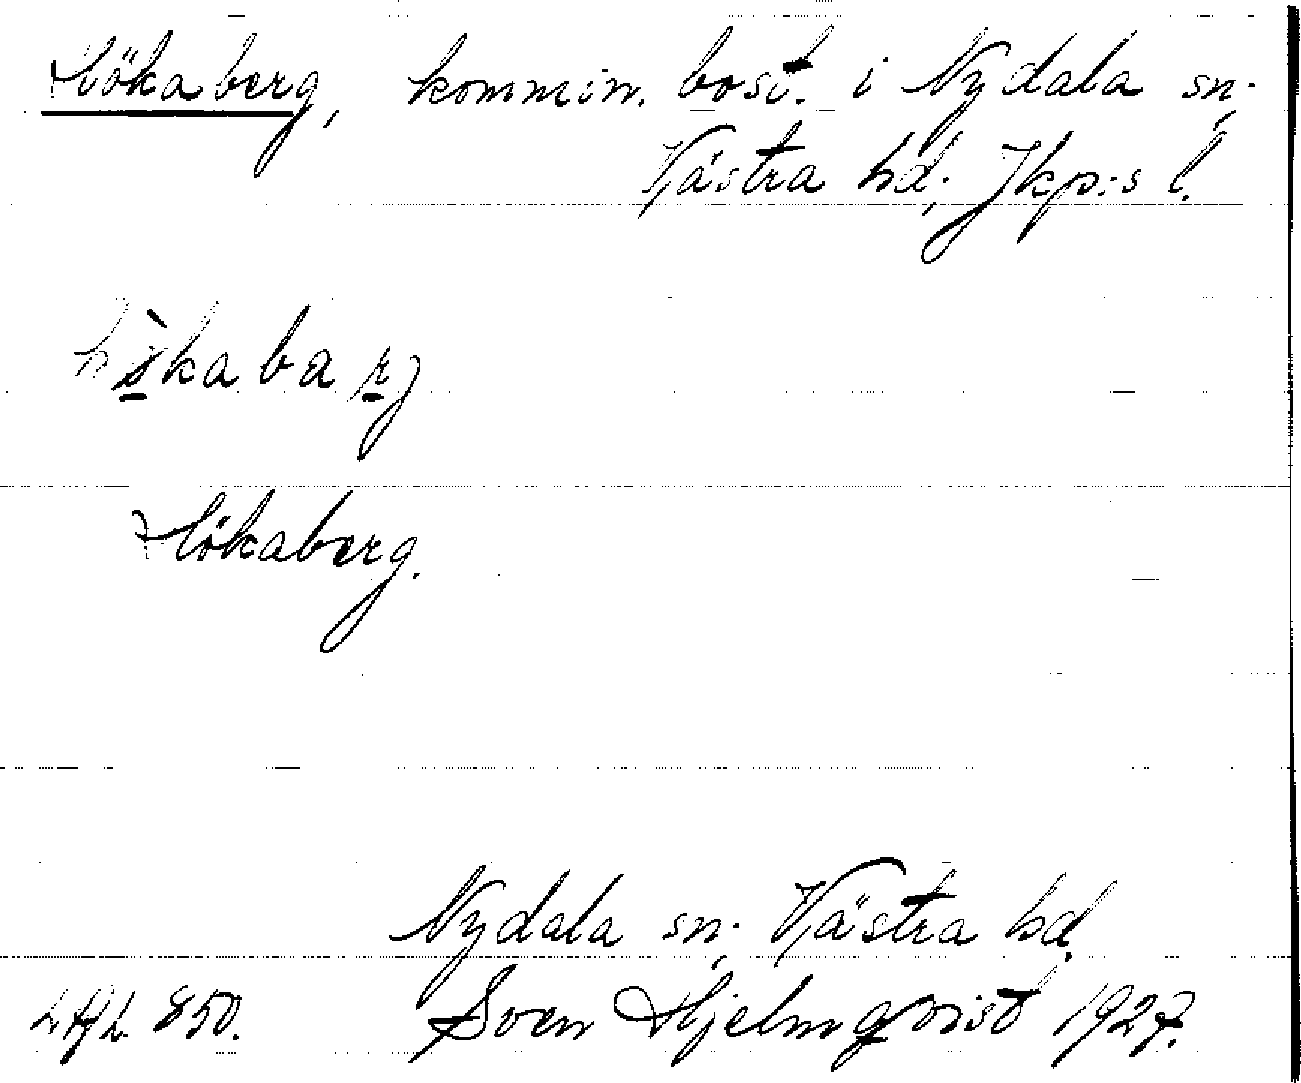 Hökaberg, kommin. bost. i Nydala sn.
Västra hd; Jkp:s l.
Hökaberg.
Nydala sn. Västra hd.
850. Sven Hjelmqvist 1927.